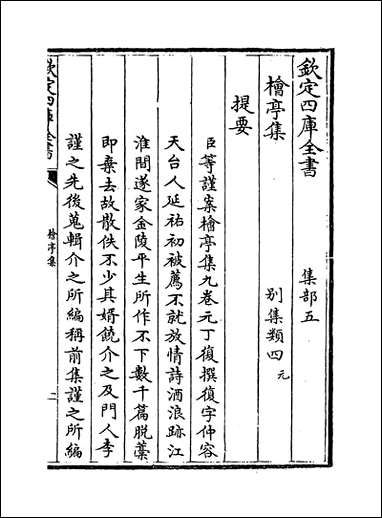 欽定四庫全書
集部五
檜亭集
別集類四元
提要
臣等謹案檜亭集九卷元丁復撰復字仲容
天台人延祐初被薦不就放情詩酒浪跡江
淮間遂家金陵平生所作不下數千篇脫藁
即棄去故散佚不少其婿饒介之及門人李
謹之先後蒐輯介之所編稱前集謹之所編
欽定四庫全書
檜亭集